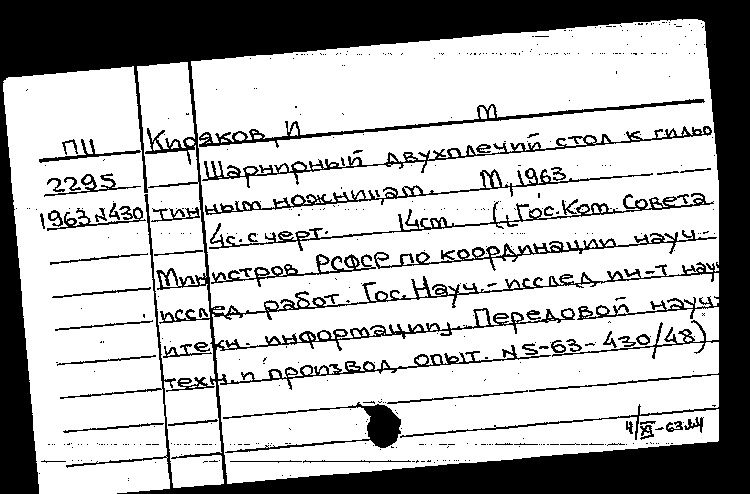 ПII Киряков, И М
2295 Шарнирный двухплечий стол к гильо
1963 N430 тинным ножницам. М., 1963.
4с. с черт. 14см. (Гос. Ком. Совета
Министров РСФСР по координации науч.-
исслед. работ. Гос. Науч.-исслед ин-т науч
и техн. информации. Передовой науч.
техн. и производ. опыт. N 5-63-430/48)
4/XI-63